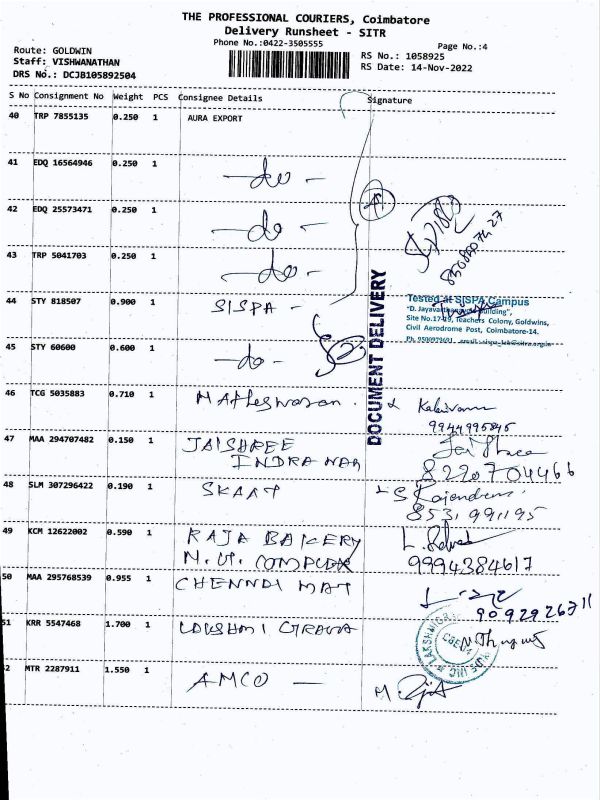 THE PROFESSIONAL COURIERS, Coimbatore
Delivery Runsheet - SITR
Phone No.:0422-3505555
Page No.:4
Route: GOLDWIN
Staff: VISHWANATHAN
DRS No.: DCJB105892504
RS No.: 1058925
RS Date: 14-Nov-2022
S No Consignment No Weight PCS Consignee Details Signature
40 TRP 7855135 0.250 1 AURA EXPORT
41 EDQ 16564946 0.250 1 -do-
42 EDQ 25573471 0.250 1 -do-
43 TRP 5041703 0.250 1 -do-
DOCUMENT DELIVERY
44 STY 818507 0.900 1 SISPA -
Tested at SISPA Campus
"D. Jayavarthanavelu Building",
Site No.17-19, Teachers Colony, Goldwins,
Civil Aerodrome Post, Coimbatore-14.
45 STY 60600 0.600 1 -do-
46 TCG 5035883 0.710 1
9944995845
47 MAA 294707482 0.150 1 JAISHREE
INDRA NAR
8220704466
48 SLM 307296422 0.190 1 SKAAT S Rajendran
8531991195
49 KCM 12622002 0.590 1 RAJA BAKERY
N.V. COMPLEX
9994384617
50 MAA 295768539 0.955 1 CHENNAI MAT
9092926311
51 KRR 5547468 1.700 1 LAKSHMI
2 MTR 2287911 1.550 1 AMCO -